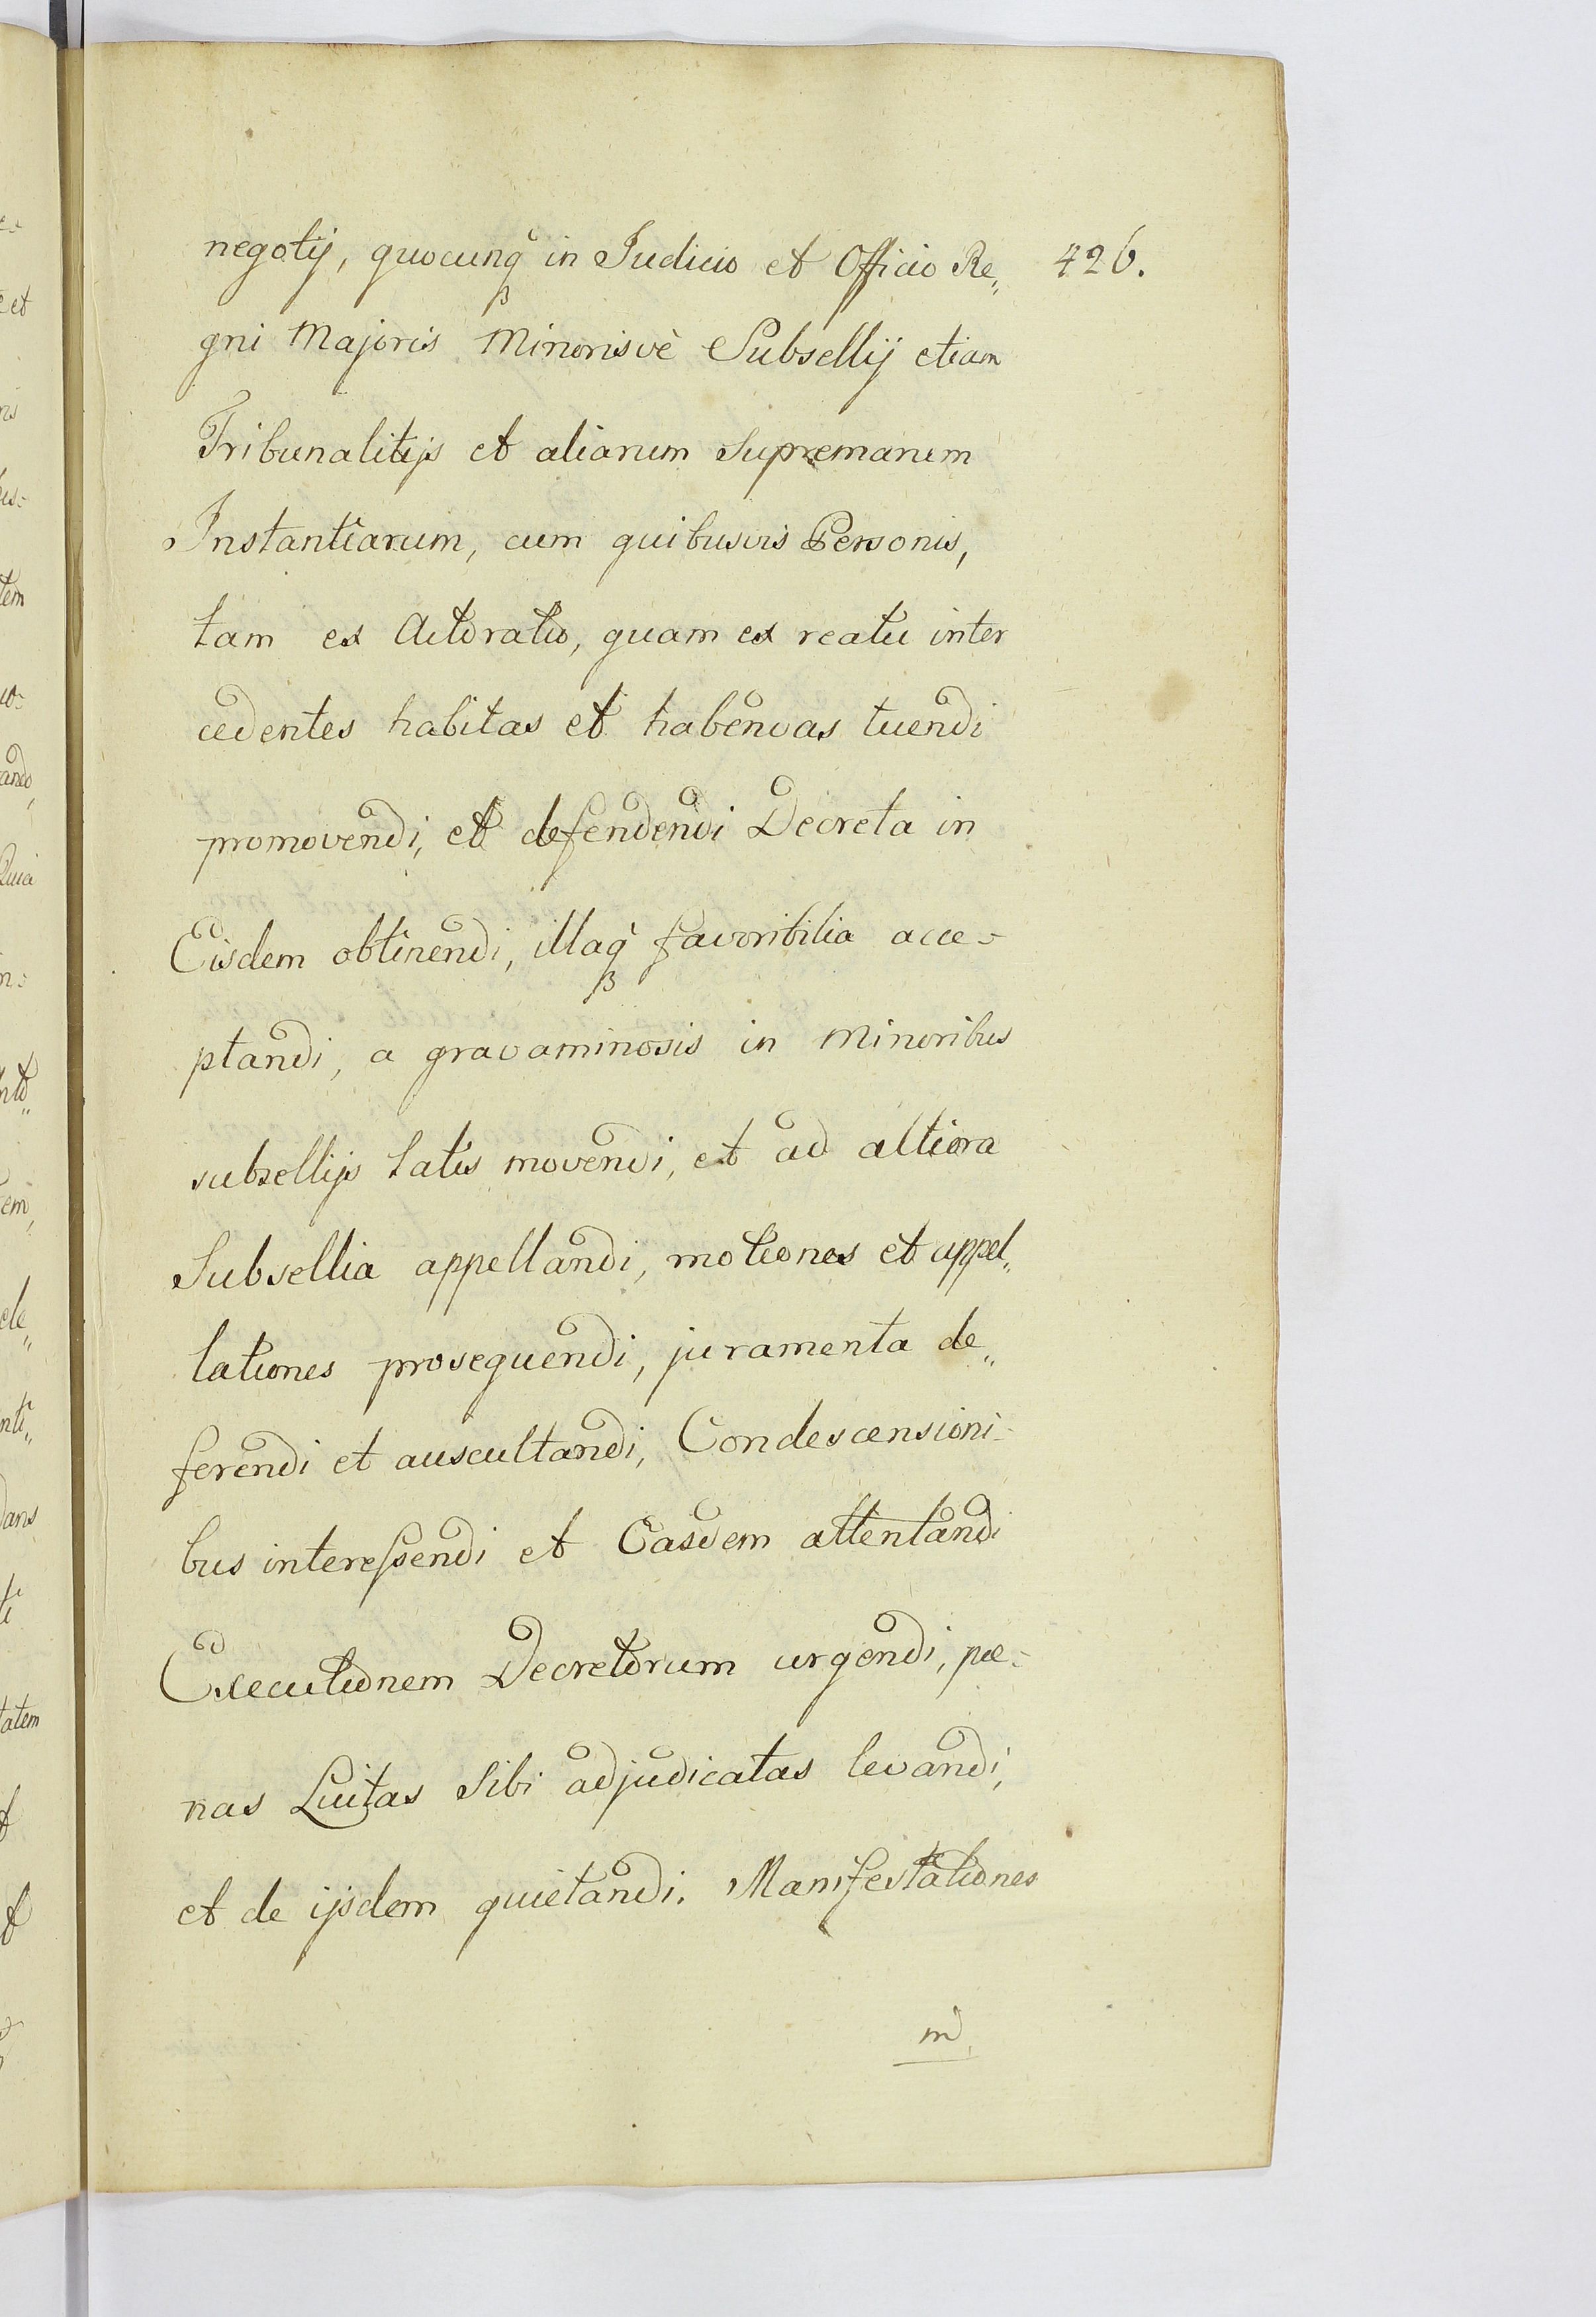 negotij, quocunq́ in Judicio et Officio Re„ 426.
gni Majoris Minorisvè Subsellij etiam
Tribunalitijs et aliarum Supremarum
Instantiarum, cum quibusvis Personis,
tam ex Actoratu, quam ex reatu inter
cedentes habitas et habendas tuendi
promovendi, et defendendi Decreta in
Eisdem obtinendi, illaq́ favoribilia acce=
ptandi, a gravaminosis in Minoribus
subsellijs latis movendi, et ad altiora
Subsellia appellandi, motiones et appel„
lationes prosequendi, juramenta de„
ferendi et auscultandi, Condescensioni-
bus interessendi et Easdem attentandi
Executionem Decretorum urgendi, pæ=
nas Luitas Sibi adjudicatas levandi,
et de ijsdem quietandi. Manifestationes